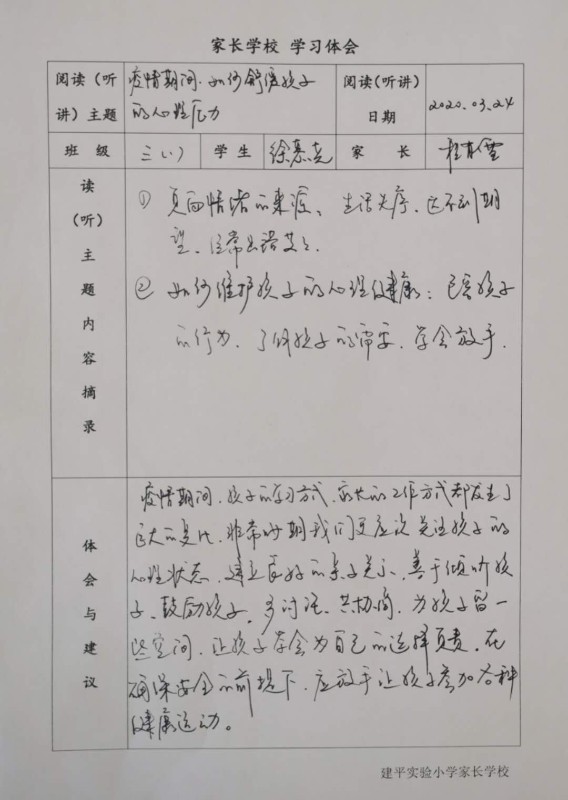 家长学校 学习体会
阅读（听讲）主题
疫情期间.如何舒缓孩子
的心理压力
阅读（听讲）日期
2020.03.24
班 级
三（1）
学生
徐慕尧
家 长
读（听）主题内容摘录
① 负面情绪的来源、生活失序、达不到期
望、经常
② 如何维护孩子的心理健康：孩子
的行为、了解孩子的需要、学会放手.
体会与建议
疫情期间,孩子的学习方式,家长的工作方式都发生了
巨大的变化,非常时期我们更应该关注孩子的
心理状态,建立良好的亲子关系、善于倾听孩
子、鼓励孩子、多讨论、共协商,为孩子留一
些空间,让孩子学会为自己的选择负责。在
确保安全的前提下,应放手让孩子参加各种
健康运动。
建平实验小学家长学校